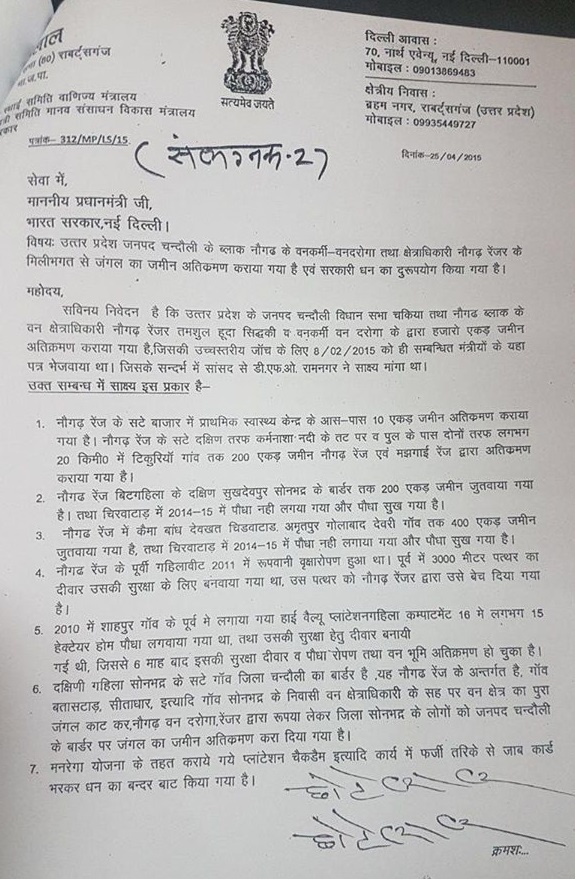 लाल
(80) राबर्ट्सगंज
भा.ज.पा.
स्थाई समिति वाणिज्य मंत्रालय
समिति मानव संसाधन विकास मंत्रालय
सत्यमेव जयते
दिल्ली आवास :
70, नार्थ एवेन्यू, नई दिल्ली-110001
मोबाइल : 09013869483
क्षेत्रीय निवास :
ब्रहम नगर, राबर्ट्सगंज (उत्तर प्रदेश)
मोबाइल : 09935449727
पत्रांक– 312/MP/LS/15.
(संलग्नक-2)
दिनांक-25/04/2015
सेवा में,
माननीय प्रधानमंत्री जी,
भारत सरकार,नई दिल्ली।
विषयः उत्तर प्रदेश जनपद चन्दौली के ब्लाक नौगढ के वनकर्मी-वनदरोगा तथा क्षेत्राधिकारी नौगढ़ रेंजर के
मिलीभगत से जंगल का जमीन अतिकमण कराया गया है एवं सरकारी धन का दुरूपयोग किया गया है।
महोदय,
सविनय निवेदन है कि उत्तर प्रदेश के जनपद चन्दौली विधान सभा चकिया तथा नौगढ ब्लाक के
वन क्षेत्राधिकारी नौगढ़ रेंजर तमशुल हूदा सिद्धकी व वनकर्मी वन दरोगा के द्वारा हजारो एकड़ जमीन
अतिकमण कराया गया है,जिसकी उच्चस्तरीय जॉच के लिए 8/02/2015 को ही सम्बन्धित मंत्रीयों के यहा
पत्र भेजवाया था। जिसके सन्दर्भ में सांसद से डी.एफ.ओ. रामनगर ने साक्ष्य मांगा था।
उक्त सम्बन्ध में साक्ष्य इस प्रकार है–
1. नौगढ़ रेंज के सटे बाजार में प्राथमिक स्वास्थ्य केन्द्र के आस-पास 10 एकड़ जमीन अतिकमण कराया
गया है। नौगढ़ रेंज के सटे दक्षिण तरफ कर्मनाशा नदी के तट पर व पुल के पास दोनों तरफ लगभग
20 किमी0 में टिकुरियॉ गांव तक 200 एकड़ जमीन नौगढ़ रेंज एवं मझगाई रेंज द्वारा अतिकमण
कराया गया है।
2. नौगढ रेंज बिटगहिला के दक्षिण सुखदेवपुर सोनभद्र के बार्डर तक 200 एकड़ जमीन जुतवाया गया
है। तथा चिरवाटाड़ में 2014-15 में पौधा नही लगया गया और पौधा सुख गया है।
3. नौगढ रेंज में कैमा बांध देवखत चिडवाटाड. अमृतपुर गोलाबाद देवरी गॉव तक 400 एकड़ जमीन
जुतवाया गया है, तथा चिरवाटाड़ में 2014-15 में पौधा नही लगाया गया और पौधा सुख गया है।
4. नौगढ रेंज के पूर्वी गहिलावीट 2011 में रूपवानी वृक्षारोपण हुआ था। पूर्व में 3000 मीटर पत्थर का
दीवार उसकी सुरक्षा के लिए बनवाया गया था, उस पत्थर को नौगढ़ रेंजर द्वारा उसे बेच दिया गया
है।
5. 2010 में शाहपुर गॉव के पूर्व मे लगाया गया हाई वैल्यू प्लांटेशनगहिला कम्पाटमेंट 16 मे लगभग 15
हेक्टेयर होम पौधा लगवाया गया था, तथा उसकी सुरक्षा हेतु दीवार बनायी
गई थी, जिससे 6 माह बाद इसकी सुरक्षा दीवार व पौधा रोपण तथा वन भूमि अतिक्रमण हो चुका है।
6. दक्षिणी गहिला सोनभद्र के सटे गॉव जिला चन्दौली का बार्डर है ,यह नौगढ रेंज के अन्तर्गत है, गॉव
बतासटाड़, सीताधार, इत्यादि गॉव सोनभद्र के निवासी वन क्षेत्राधिकारी के सह पर वन क्षेत्र का पुरा
जंगल काट कर,नौगढ़ वन दरोगा,रेंजर द्वारा रूपया लेकर जिला सोनभद्र के लोगों को जनपद चन्दौली
के बार्डर पर जंगल का जमीन अतिकमण करा दिया गया है।
7. मनरेगा योजना के तहत कराये गये प्लांटेशन चैकडैम इत्यादि कार्य में फर्जी तरिके से जाब कार्ड
भरकर धन का बन्दर बाट किया गया है।
छोटेलाल
छोटेलाल
क्रमशः...